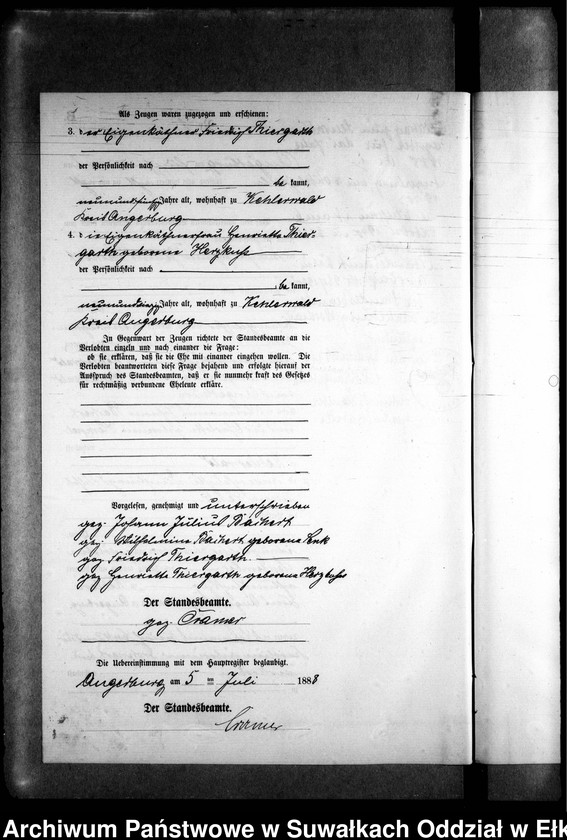 Als Zeugen waren zugezogen und erschienen:
3. der Eigenkäthner Friedrich Thiergarth
der Persönlichkeit nach
be kannt,
Jahre alt, wohnhaft zu Kehlerwald
Kreis Angerburg
4. die Eigenkäthnerfrau Henriette Thier-
garth geborene Herzkuhs
der Persönlichkeit nach
be kannt,
Jahre alt, wohnhaft zu Kehlerwald
Kreis Angerburg
In Gegenwart der Zeugen richtete der Standesbeamte an die
Verlobten einzeln und nach einander die Frage:
ob sie erklären, daß sie die Ehe mit einander eingehen wollen. Die
Verlobten beantworteten diese Frage bejahend und erfolgte hierauf der
Ausspruch des Standesbeamten, daß er sie nunmehr kraft des Gesetzes
für rechtmäßig verbundene Eheleute erkläre.
Vorgelesen, genehmigt und unterschrieben
gez. Johann Julius
gez. Wilhelmine geborene
gez. Friedrich Thiergarth
gez. Henriette Thiergarth geborene Herzkuhs
Der Standesbeamte.
gez. Cramer
Die Uebereinstimmung mit dem Hauptregister beglaubigt.
Angerburg am 5 ten Juli 1888
Der Standesbeamte.
Cramer
Archiwum Państwowe w Suwałkach Oddział w Ełk